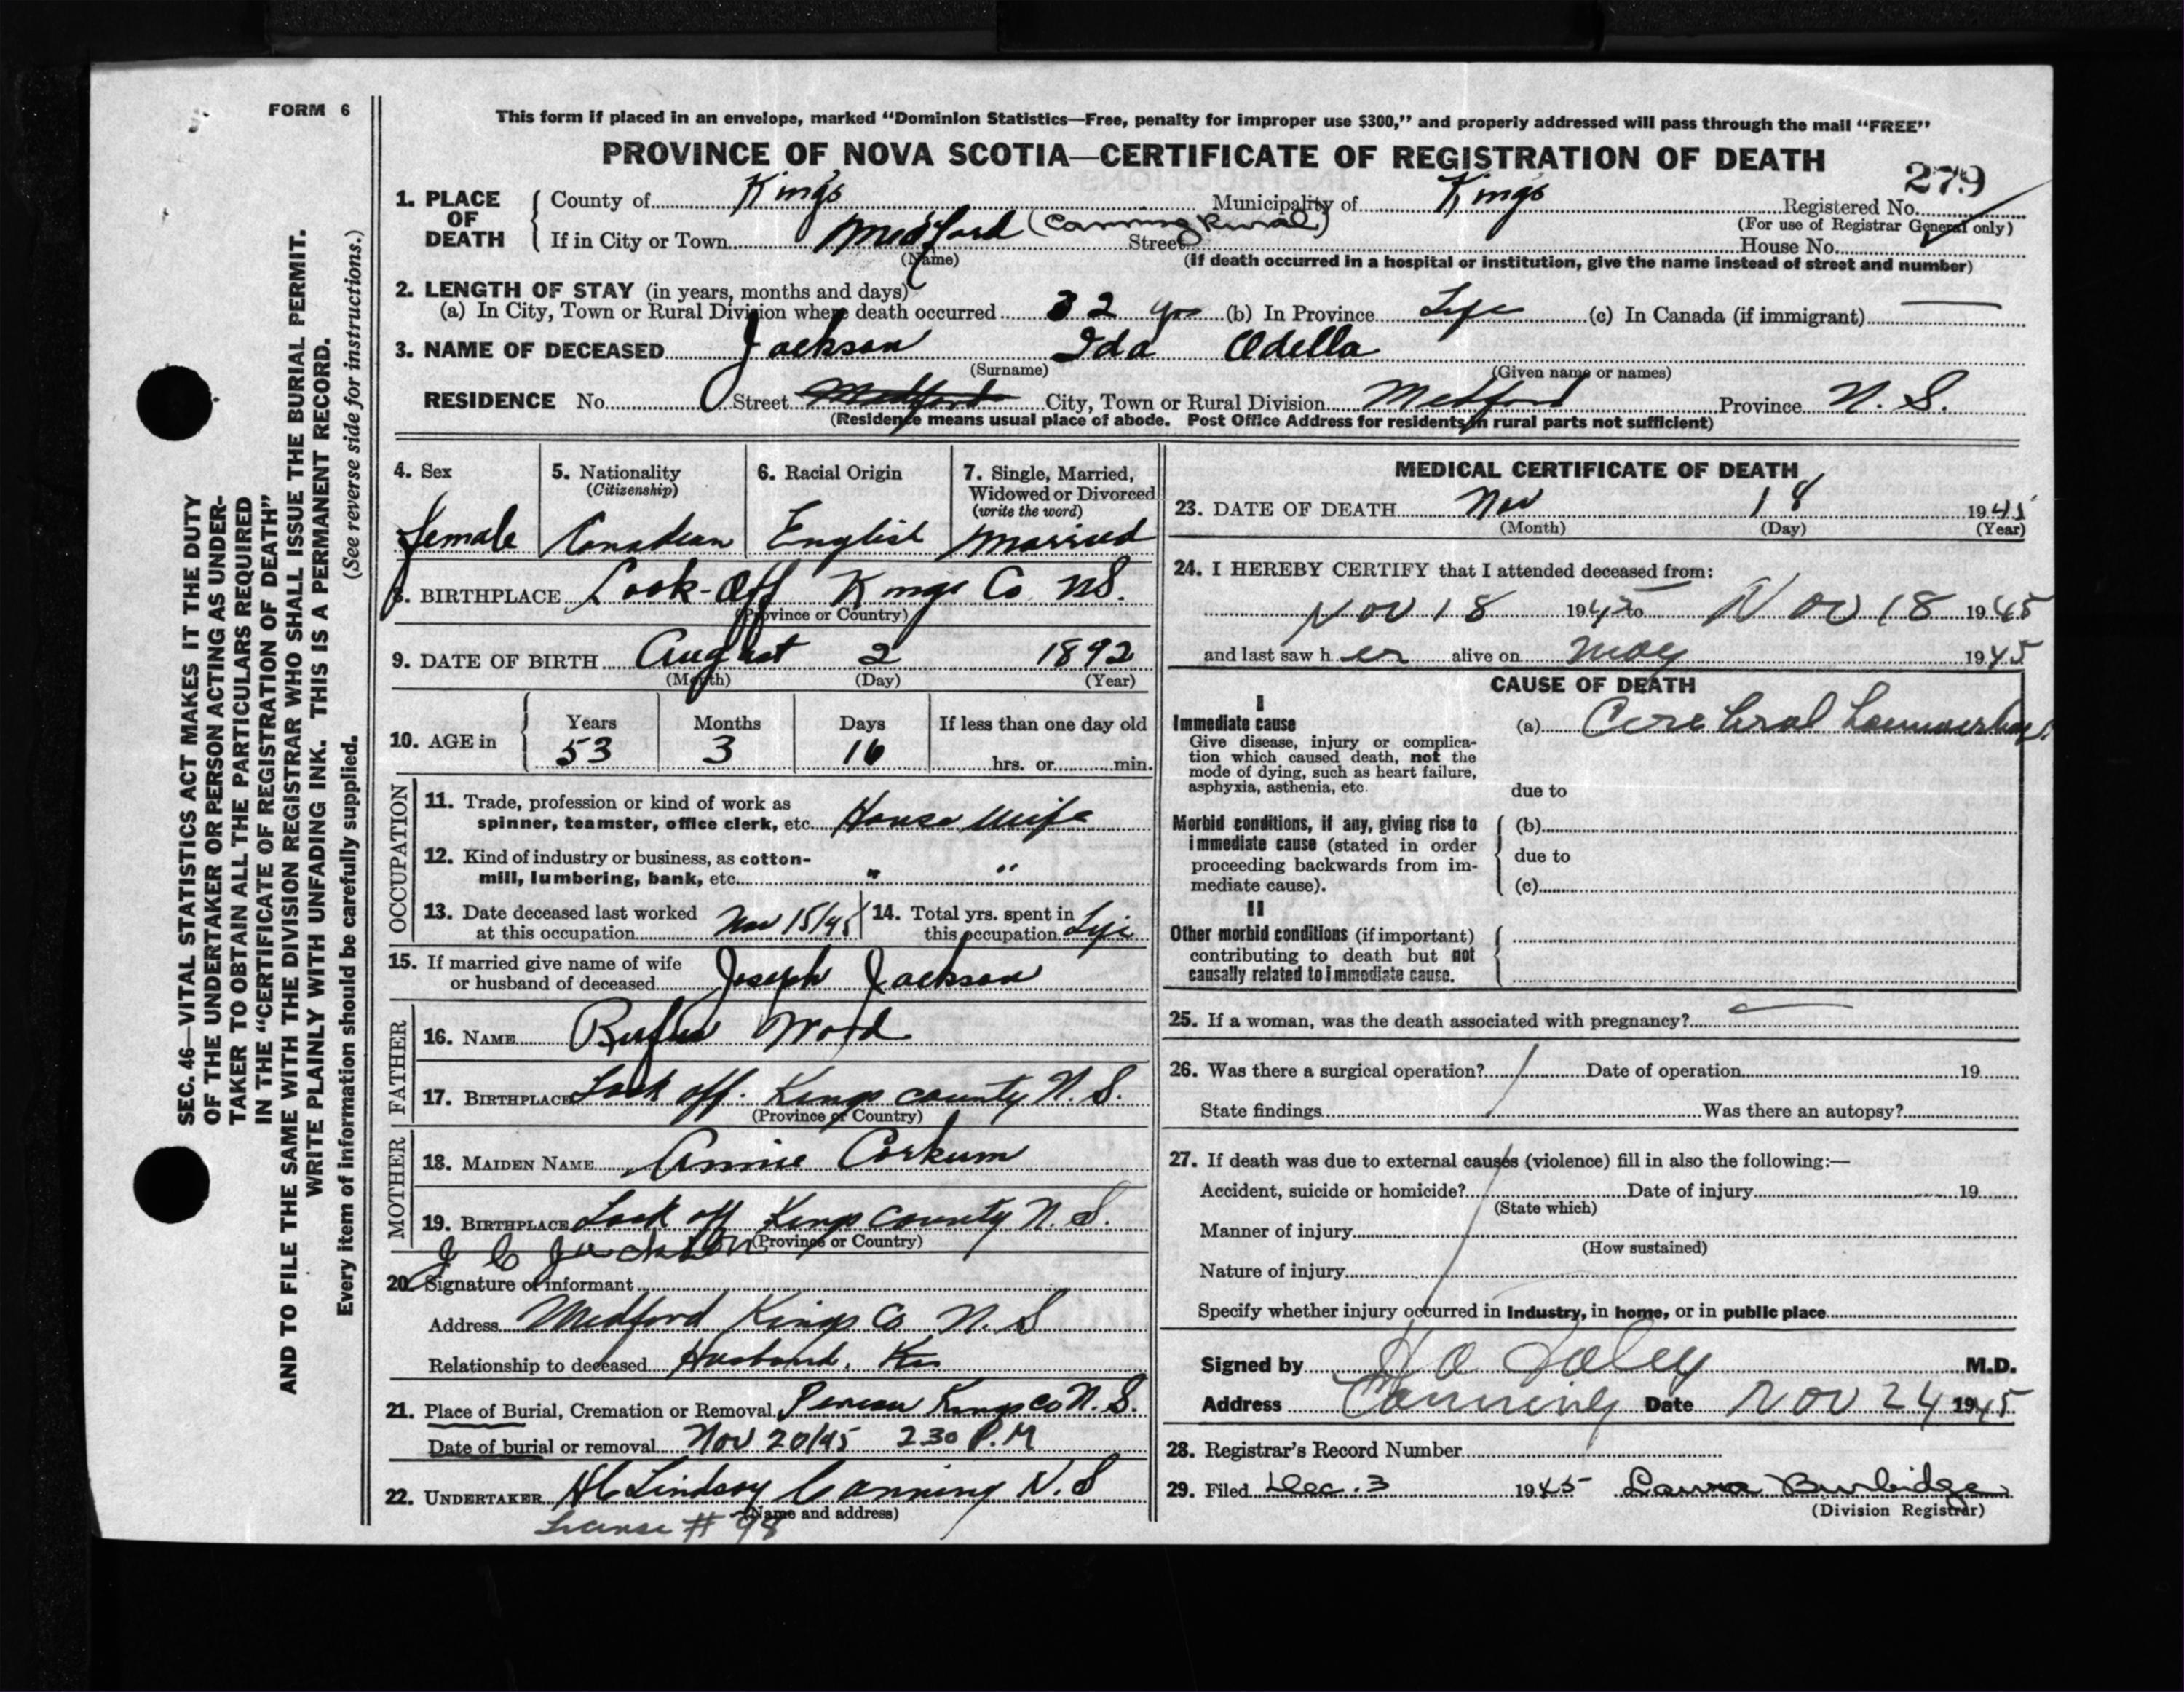 FORM 6
SEC. 46—VITAL STATISTICS ACT MAKES IT THE DUTY
OF THE UNDERTAKER OR PERSON ACTING AS UNDER-
TAKER TO OBTAIN ALL THE PARTICULARS REQUIRED
IN THE "CERTIFICATE OF REGISTRATION OF DEATH"
AND TO FILE THE SAME WITH THE DIVISION REGISTRAR WHO SHALL ISSUE THE BURIAL PERMIT.
WRITE PLAINLY WITH UNFADING INK. THIS IS A PERMANENT RECORD.
Every item of information should be carefully supplied. (See reverse side for instructions.)
This form if placed in an envelope, marked "Dominion Statistics—Free, penalty for improper use $300," and properly addressed will pass through the mail "FREE"
PROVINCE OF NOVA SCOTIA—CERTIFICATE OF REGISTRATION OF DEATH
279
1. PLACE OF DEATH County of Kings Municipality of Kings Registered No.
(For use of Registrar General only)
If in City or Town Medford (Canning Rural) Street House No.
(Name) (If death occurred in a hospital or institution, give the name instead of street and number)
2. LENGTH OF STAY (in years, months and days)
(a) In City, Town or Rural Division where death occurred 32 yrs (b) In Province Life (c) In Canada (if immigrant)
3. NAME OF DECEASED Jackson Ida Odella
(Surname) (Given name or names)
RESIDENCE No. Street Medford City, Town or Rural Division Medford Province N. S.
(Residence means usual place of abode. Post Office Address for residents in rural parts not sufficient)
4. Sex 5. Nationality 6. Racial Origin 7. Single, Married,
(Citizenship) Widowed or Divorced
(write the word)
female Canadian English Married
8. BIRTHPLACE Look-Off Kings Co NS.
(Province or Country)
9. DATE OF BIRTH August 2 1892
(Month) (Day) (Year)
10. AGE in Years Months Days If less than one day old
53 3 16 hrs. or min.
OCCUPATION
11. Trade, profession or kind of work as
spinner, teamster, office clerk, etc. House Wife
12. Kind of industry or business, as cotton-
mill, lumbering, bank, etc. " "
13. Date deceased last worked 14. Total yrs. spent in
at this occupation Nov 15/45 this occupation Life
15. If married give name of wife
or husband of deceased Joseph Jackson
FATHER
16. NAME Rufus Wood
17. BIRTHPLACE Look off. Kings County N. S.
(Province or Country)
MOTHER
18. MAIDEN NAME Annie Corkum
19. BIRTHPLACE Look off Kings County N. S.
(Province or Country)
J C Jackson
20. Signature of informant
Address Medford Kings Co N. S
Relationship to deceased Husband.
21. Place of Burial, Cremation or Removal Kings Co N. S.
Date of burial or removal Nov 20/45 2 30 P.M
22. UNDERTAKER H C Lindsay Canning N. S
(Name and address)
License # 98
MEDICAL CERTIFICATE OF DEATH
23. DATE OF DEATH Nov 18 1945
(Month) (Day) (Year)
24. I HEREBY CERTIFY that I attended deceased from:
Nov 18 1945 to Nov 18 1945
and last saw h er alive on May 1945
CAUSE OF DEATH
I
Immediate cause (a) Cerebral
Give disease, injury or complica-
tion which caused death, not the
mode of dying, such as heart failure,
asphyxia, asthenia, etc. due to
Morbid conditions, if any, giving rise to (b)
immediate cause (stated in order due to
proceeding backwards from im-
mediate cause). (c)
II
Other morbid conditions (if important)
contributing to death but not
causally related to immediate cause.
25. If a woman, was the death associated with pregnancy?
26. Was there a surgical operation? Date of operation 19
State findings Was there an autopsy?
27. If death was due to external causes (violence) fill in also the following:—
Accident, suicide or homicide? Date of injury 19
(State which)
Manner of injury
(How sustained)
Nature of injury
Specify whether injury occurred in Industry, in home, or in public place
Signed by M.D.
Address Canning Date Nov 24 1945
28. Registrar's Record Number
29. Filed Dec. 3 1945 Laura Burbidge
(Division Registrar)